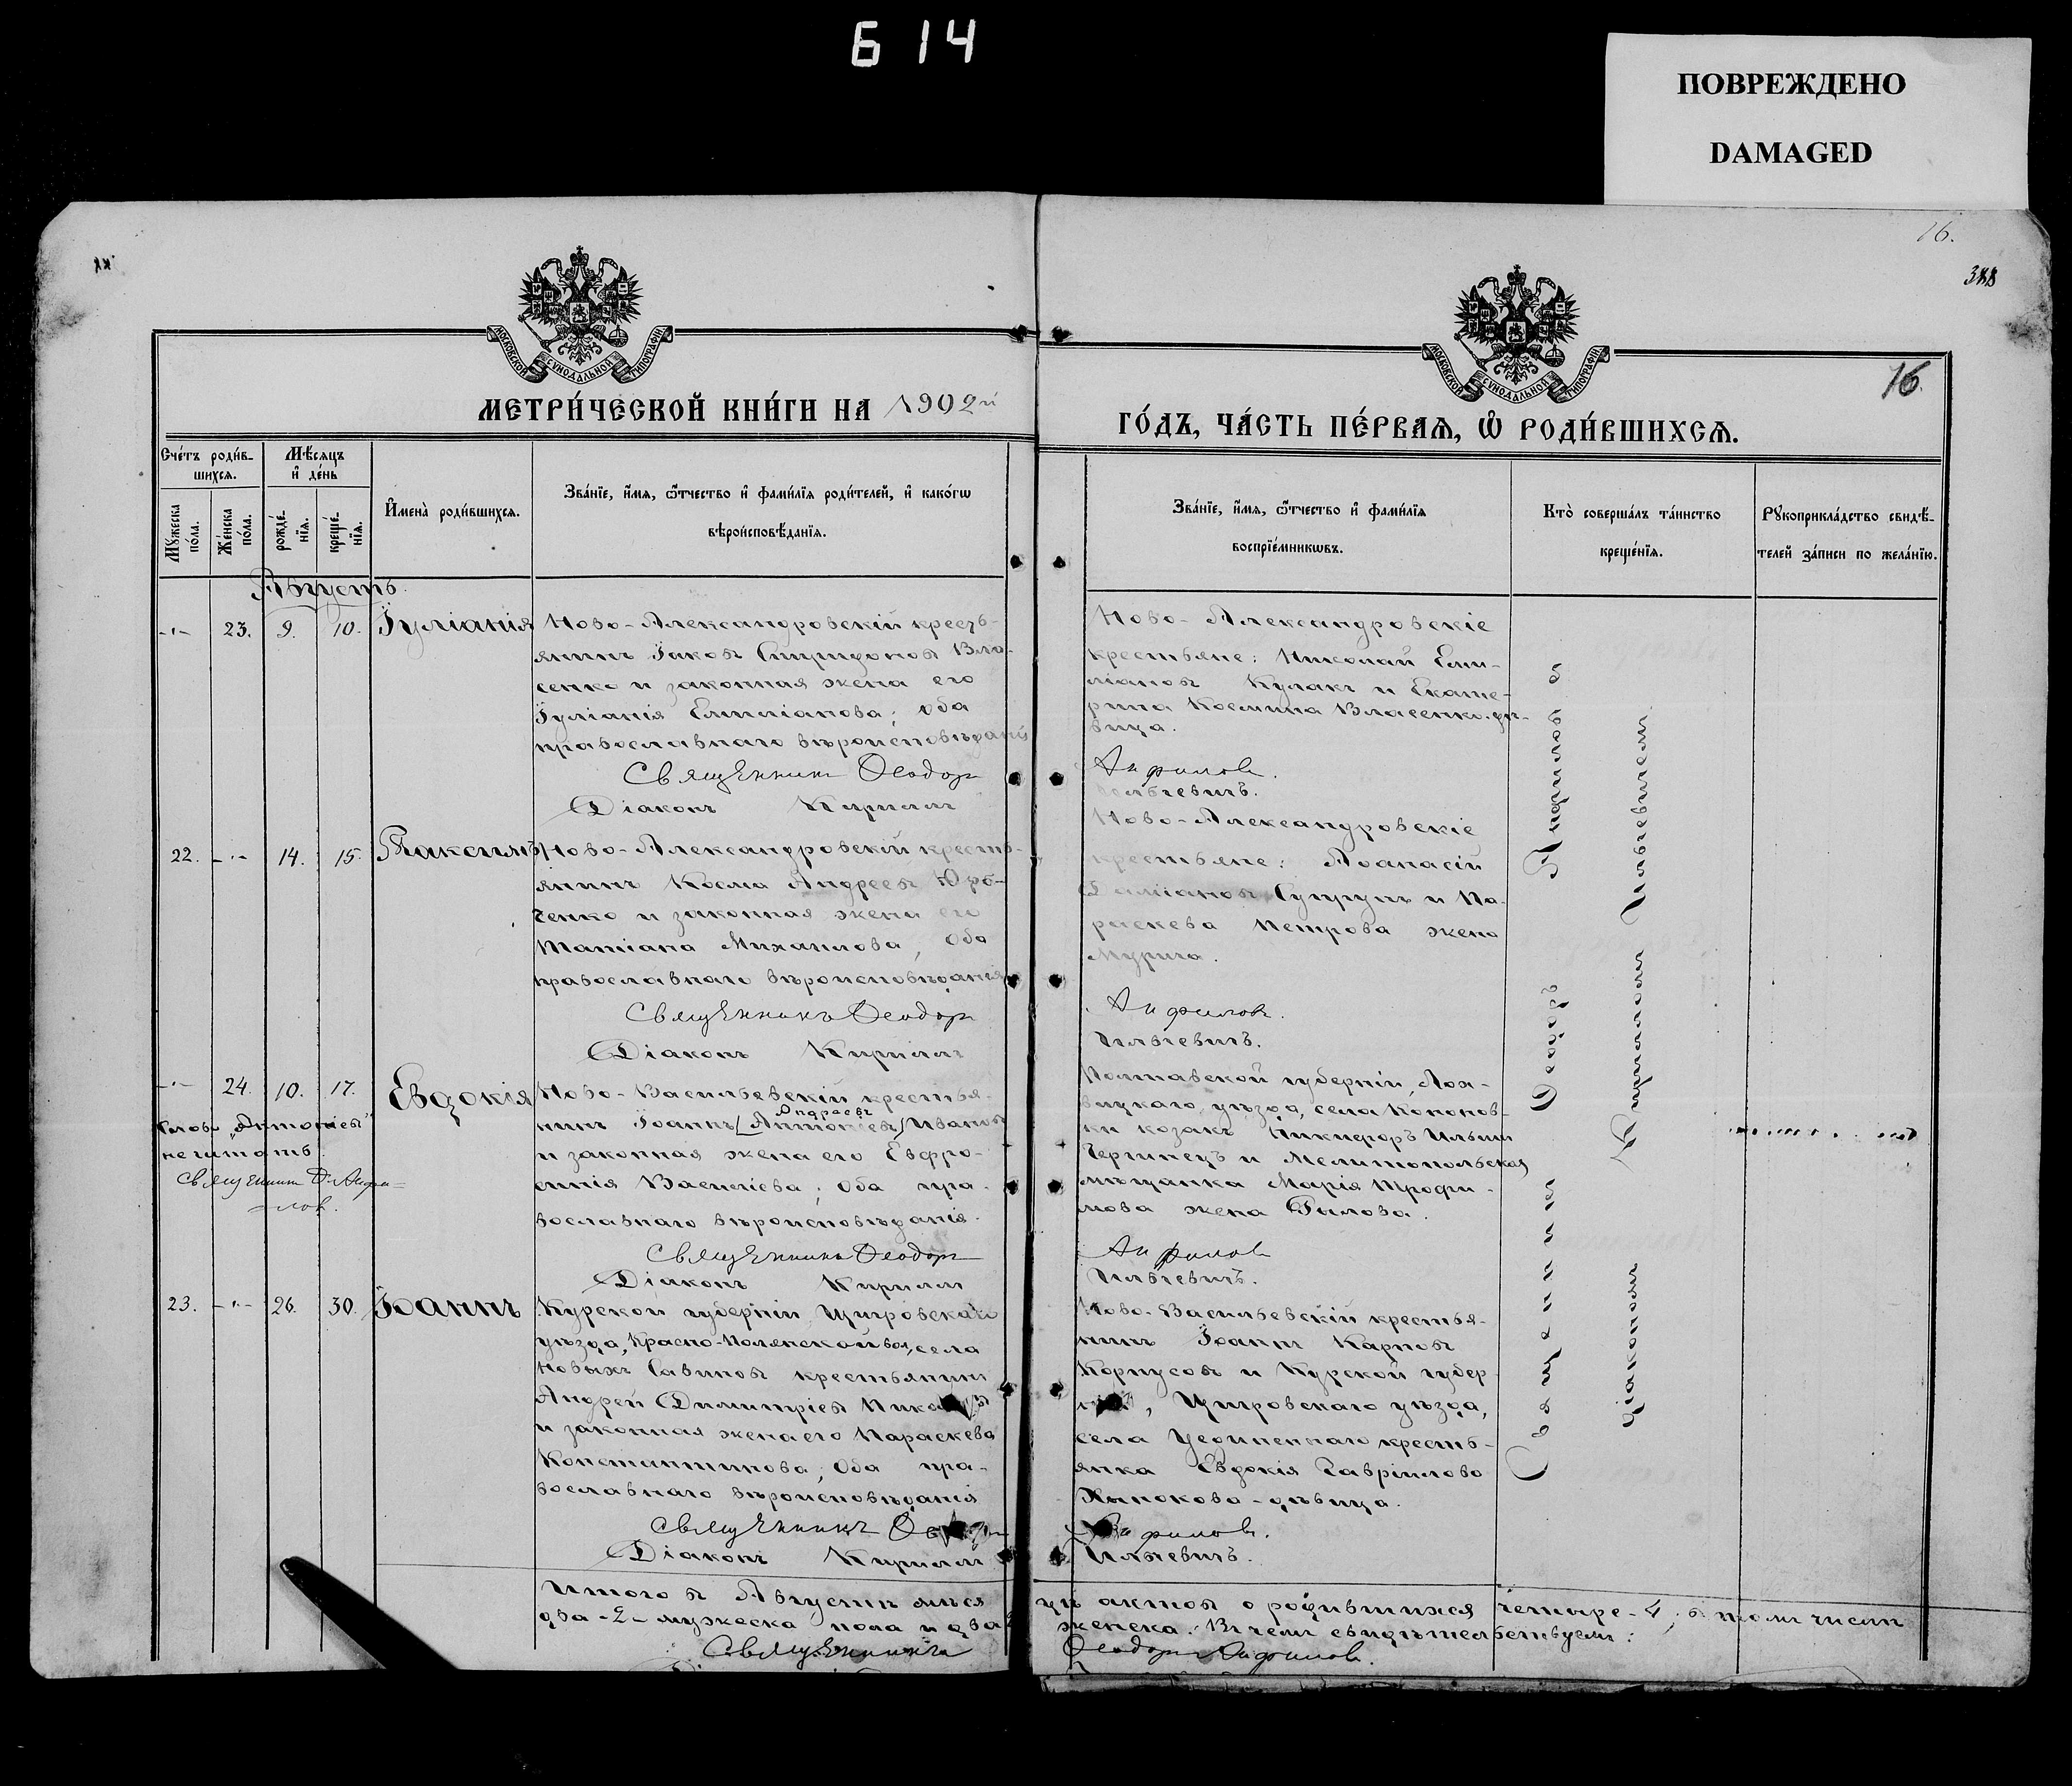 Б 14
ПОВРЕЖДЕНО
DAMAGED
16.
388
16.
МОСКОВСКОЙ СѴНОДАЛЬНОЙ ТИПОГРАФІИ
МОСКОВСКОЙ СѴНОДАЛЬНОЙ ТИПОГРАФІИ
МЕТРИ́ЧЕСКОЙ КНИ́ГИ НА 1902й
ГО́ДЪ, ЧА́СТЬ ПЕ́РВАѦ, Ѡ҆ РОДИ́ВШИХСѦ.
Сче́тъ роди́в-
шихся.
Мѣ́сяцъ
и҆ де́нь
Мꙋ́жеска по́ла.
Же́нска по́ла.
рожде́-
нїя.
креще́-
нїя.
И҆мена̀ роди́вшихся.
Зва́нїе, и҆́мя, ѻ҆́тчество и҆ фами́лїя роди́телей, и҆ како́гѡ
вѣроисповѣ́данїя.
Зва́нїе, и҆́мя, ѻ҆́тчество и҆ фами́лїя
воспрїе́мникѡвъ.
Кто̀ соверша́лъ та́инство
креще́нїя.
Рꙋкоприкла́дство свидѣ́-
телей за́писи по жела́нїю.
Августъ.
-"- 23. 9. 10. Іуліанія
Ново-Александровскій кресть-
янинъ Іаковъ Спиридоновъ Вла-
сенко и законная жена его
Іуліанія Емиліанова; оба
православнаго вѣроисповѣданія
Священникъ Ѳеодоръ
Діаконъ Кириллъ
Ново-Александровскіе
крестьяне: Николай Еми-
ліановъ Кулакъ и Екате-
рина Космина Власенко-дѣ-
вица.
Анфиловъ.
Ильчевичъ.
22. -"- 14. 15. Максимъ
Ново-Александровскій кресть-
янинъ Косма Андреевъ Юр-
ченко и законная жена его
Татіана Михаилова, оба
православнаго вѣроисповѣданія
Священникъ Ѳеодоръ
Діаконъ Кириллъ
Ново-Александровскіе
крестьяне: Аѳанасій
Даміановъ Супрунъ и Па-
раскева Петрова жена
Анфиловъ.
Ильчевичъ.
-"- 24. 10. 17. Евдокія
Слово „Антоніевъ"
не читать.
Священникъ Ѳ. Анфи-
ловъ.
Ново-Васильевскій крестья-
Андреевъ
нинъ Іоаннъ [Антоніевъ] Ивановъ
и законная жена его Евфро-
синія Василіева; оба пра-
вославнаго вѣроисповѣданія.
Священникъ Ѳеодоръ
Діаконъ Кириллъ
Полтавской губерніи, Лох-
вицкаго уѣзда, села Кононов-
ки козакъ Никифоръ Ильинъ
Чернинецъ и Мелитопольская
мѣщанка Марія Трофи-
мова жена Рылова.
Анфиловъ
Ильчевичъ.
23. -"- 26. 30. Іоаннъ
Курской губерніи, Щигровскаго
уѣзда, Красно-Полянской вол., села
Новыхъ Савиновъ крестьянинъ
Андрей Димитріевъ
и законная жена его Параскева
Константинова; оба пра-
вославнаго вѣроисповѣданія
Священникъ
Діаконъ Кириллъ
Ново-Васильевскій крестья-
нинъ Іоаннъ Карповъ
Корпусовъ и Курской губер-
Щигровскаго уѣзда,
села Уединеннаго кресть-
янка Евдокія Гавріилова
Анфиловъ.
Ильчевичъ.
Священникъ Ѳеодоръ Анфиловъ съ
діакономъ Кирилломъ Ильчевичемъ
Итого въ Августѣ мѣсяцѣ актовъ о родившихся четыре-4; въ томъ числѣ
два-2-мужеска пола и два женска. Въ чемъ свидѣтельствуемъ:
Священникъ Ѳеодоръ Анфиловъ.